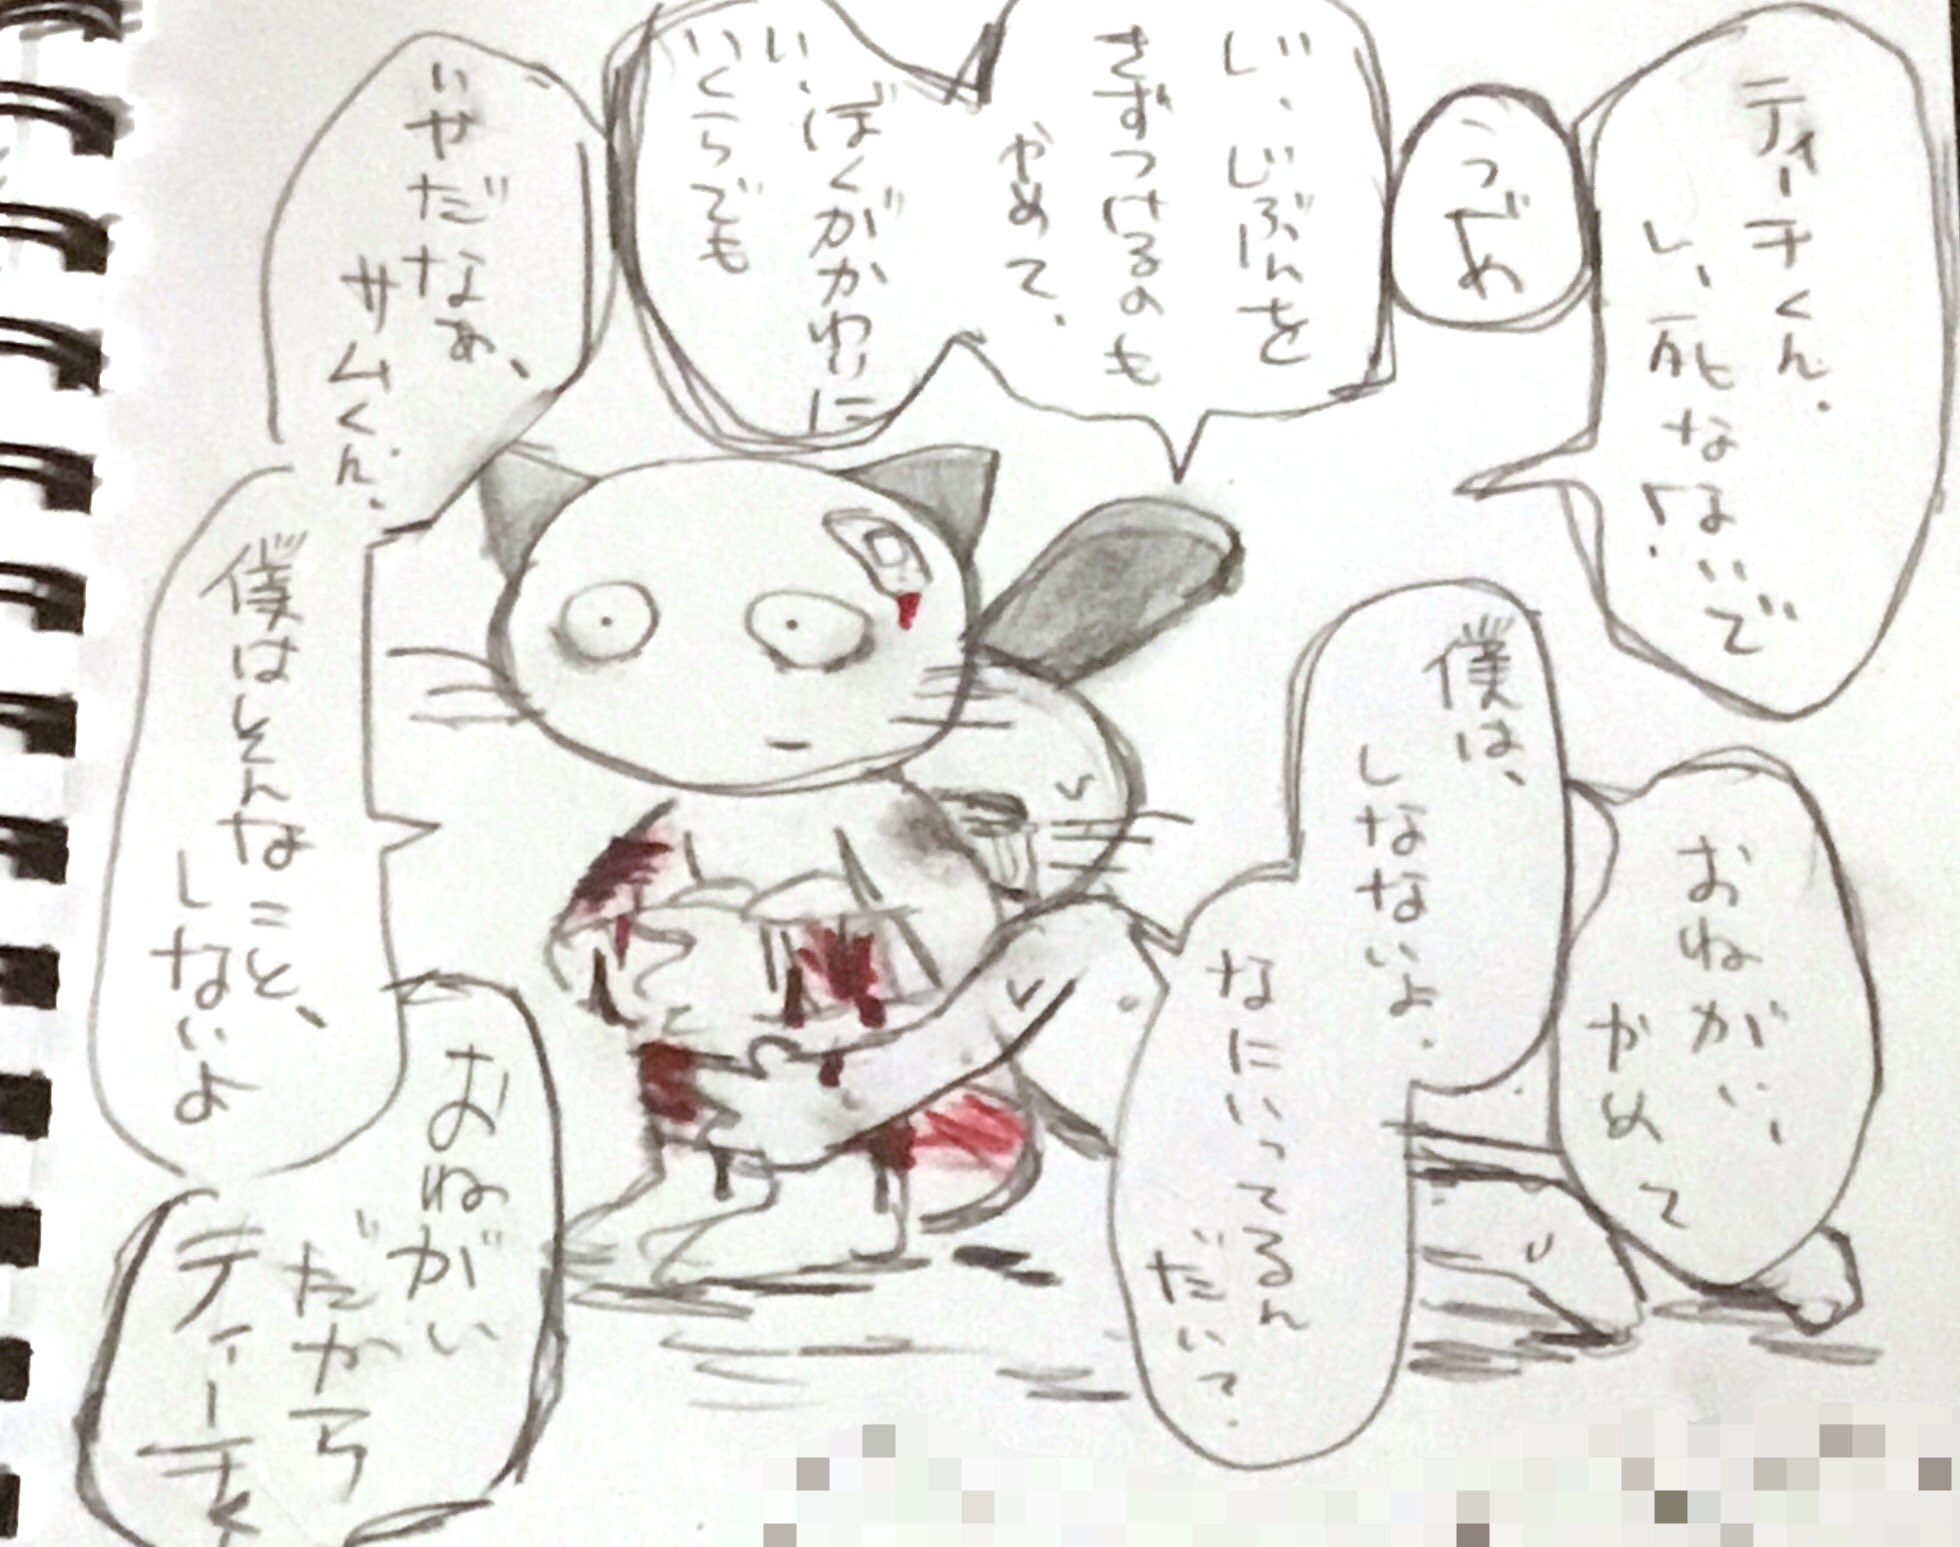 ティーチくん.
し、死なないで!.
うづめ
じ、じぶんを
きずつけるのも
やめて、
い、ぼくがかわりに
いくらでも
いやだなぁ、
サムくん、
僕はそんなこと、
しないよ
おねがい、
やめて
僕は、
しなないよ.
なにいってるん
だい?.
おねがい
だから
ティーチく